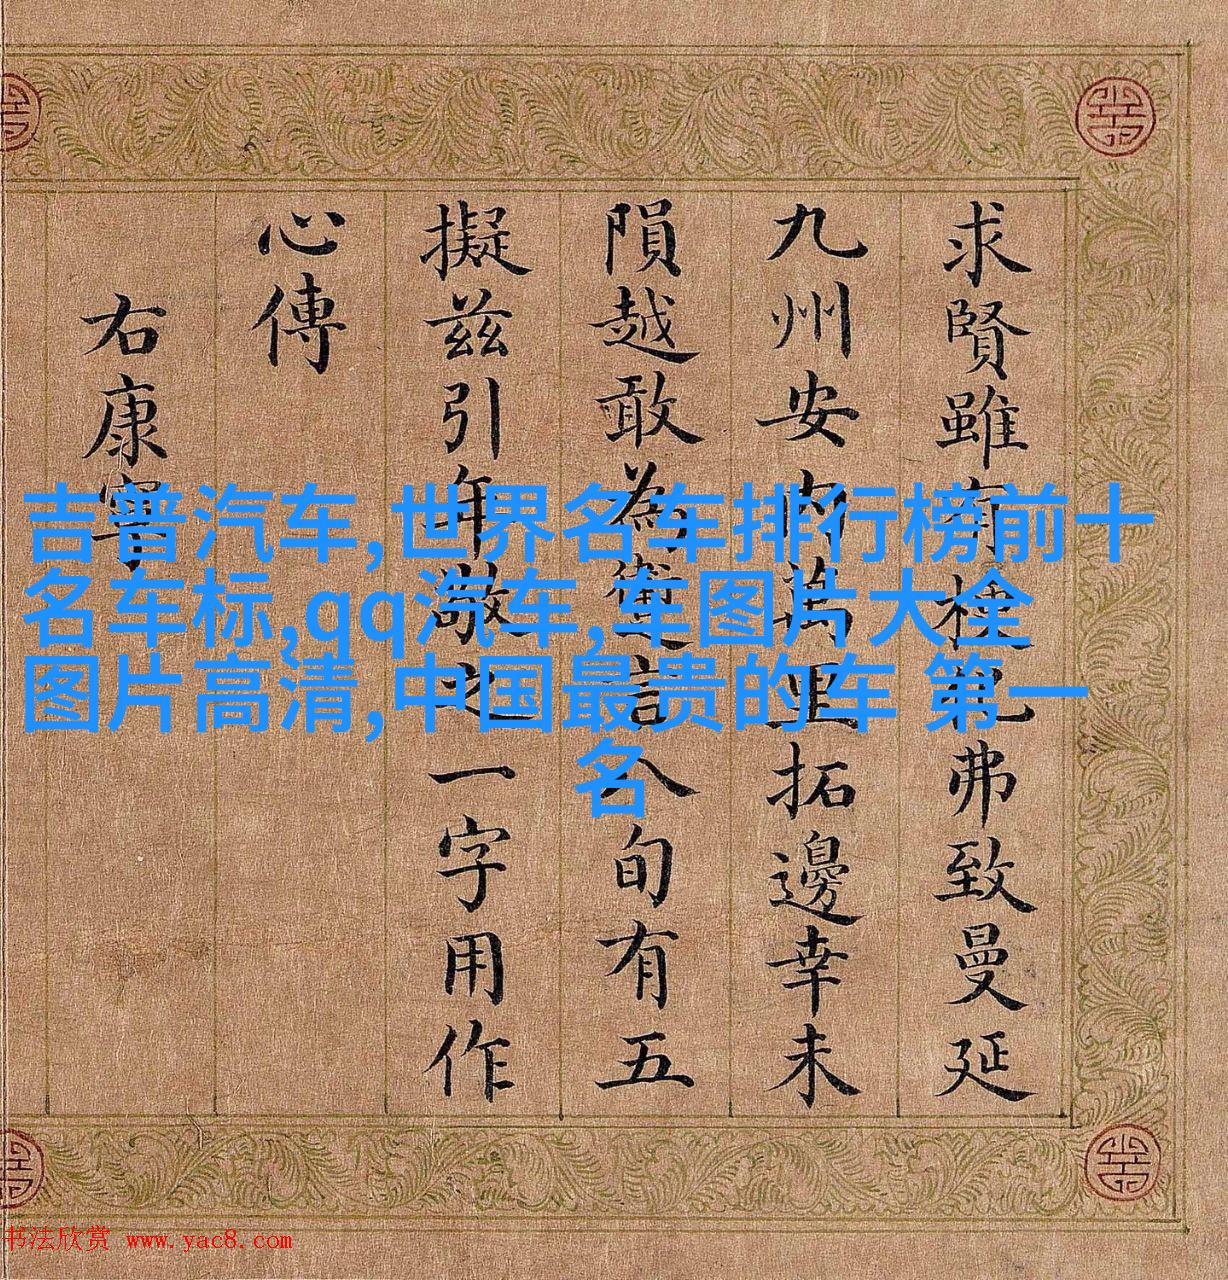 求賢雖有種弗致曼延
九州安内萬拓邊幸未
隕越敢為言八旬有五
擬兹引年敬之一字用作
心傳
右康寧
吉普汽车,世界名车排行榜前十
名车标,qq汽车,车图片大全
图片高清,中国最贵的车 第一
名
书法欣赏 www.yac8.com